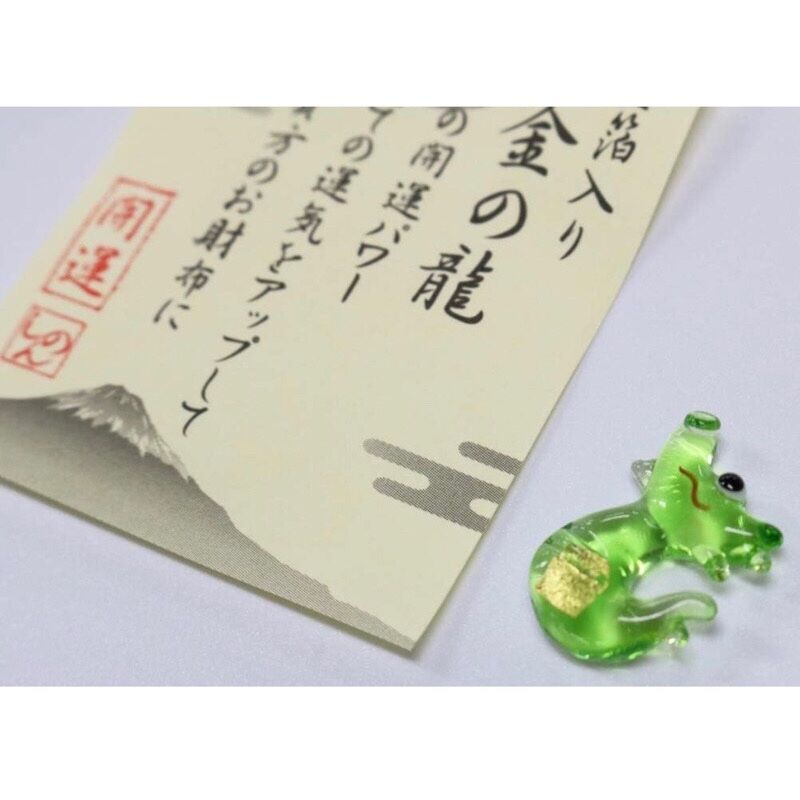 箔入り
金の龍
の開運パワー
ての運気をアップして
方のお財布に
開運
しのん